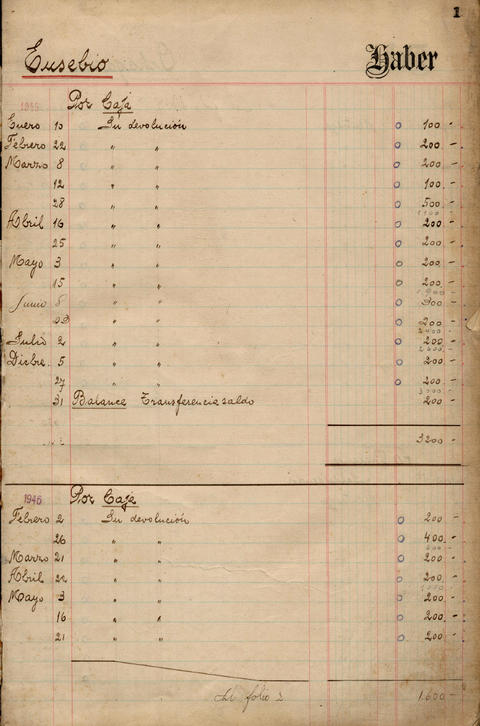 1
Eusebio Haber
1945 Por Caja
Enero 10 Su devolución 100.-
Febrero 22 " " 200.-
Marzo 8 " " 200.-
12 " " 100.-
28 " " 500.-
1100
Abril 16 " " 200.-
25 " " 200.-
Mayo 3 " " 200.-
15 " " 200.-
1.900
Junio 8 " " 300.-
23 " " 200.-
2400
Julio 2 " " 200.-
2.600
Dicbre. 5 " " 200.-
27 " " 200.-
3000
31 Balance Transferencia saldo 200.-
3200.-
1946 Por Caja
Febrero 2 Su devolución 200.-
26 " " 400.-
600
Marzo 21 " " 200.-
Abril 22 " " 200.-
1000
Mayo 3 " " 200.-
16 " " 200.-
21 " " 200.-
folio 2 1.600.-